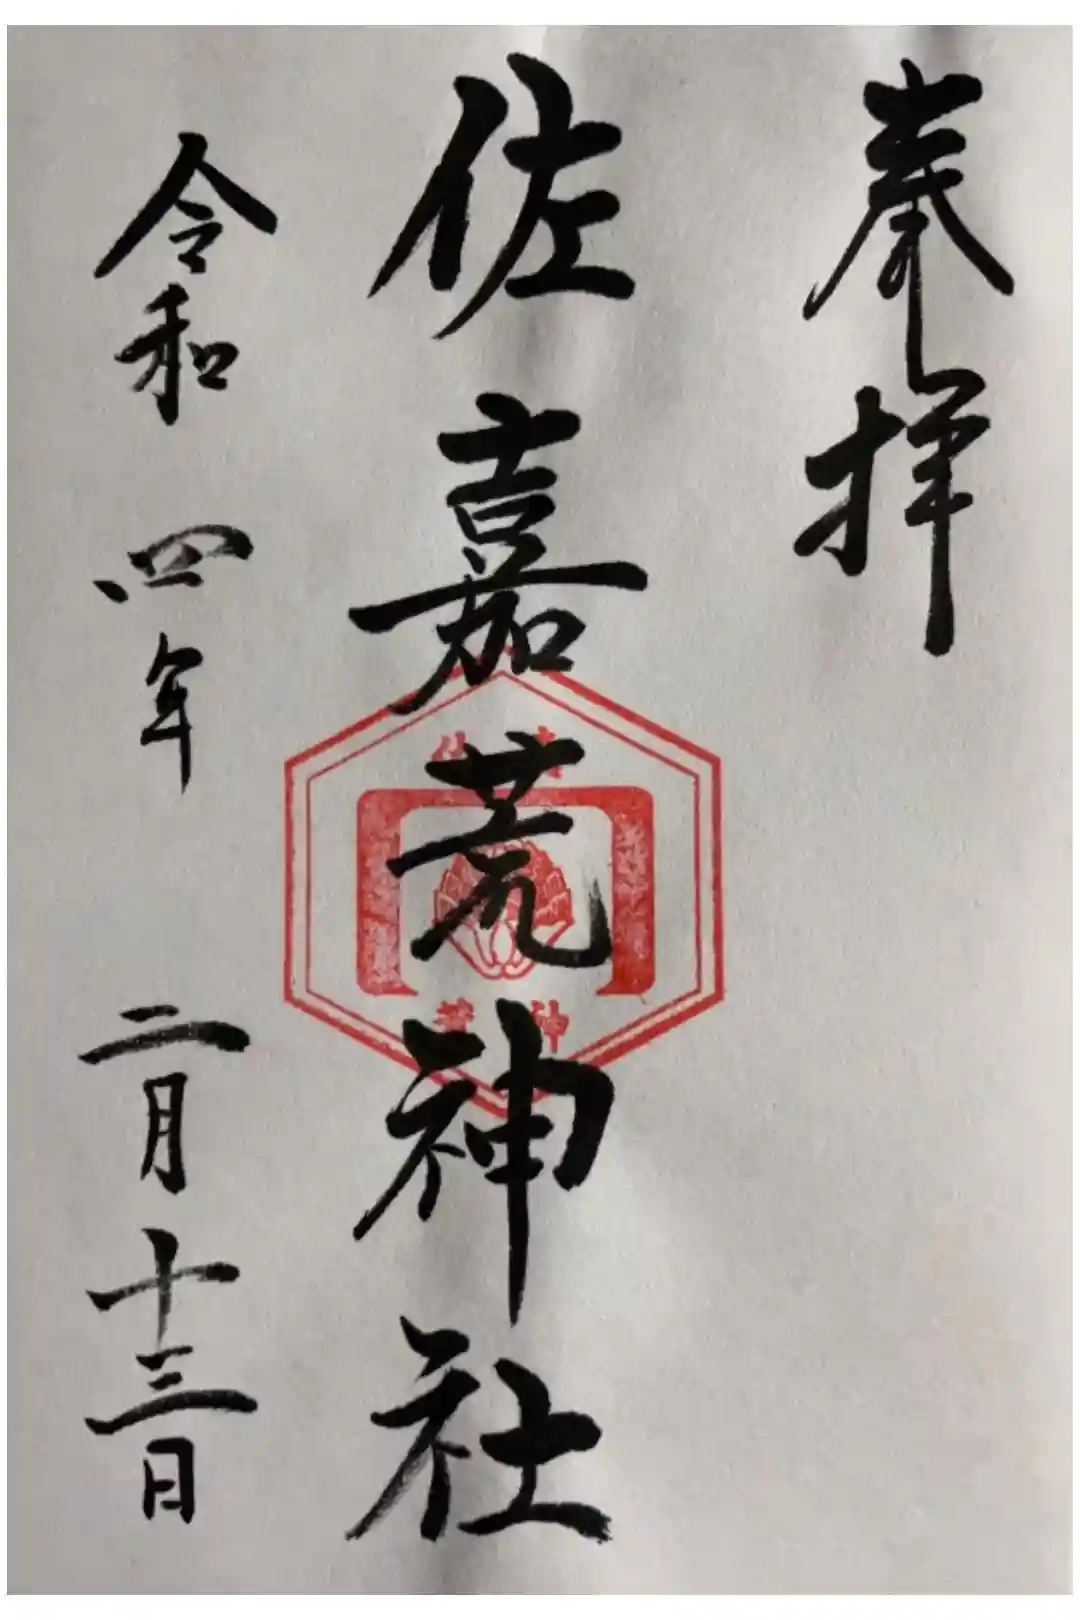 奉拝
佐嘉荒神社
令和四年二月十三日